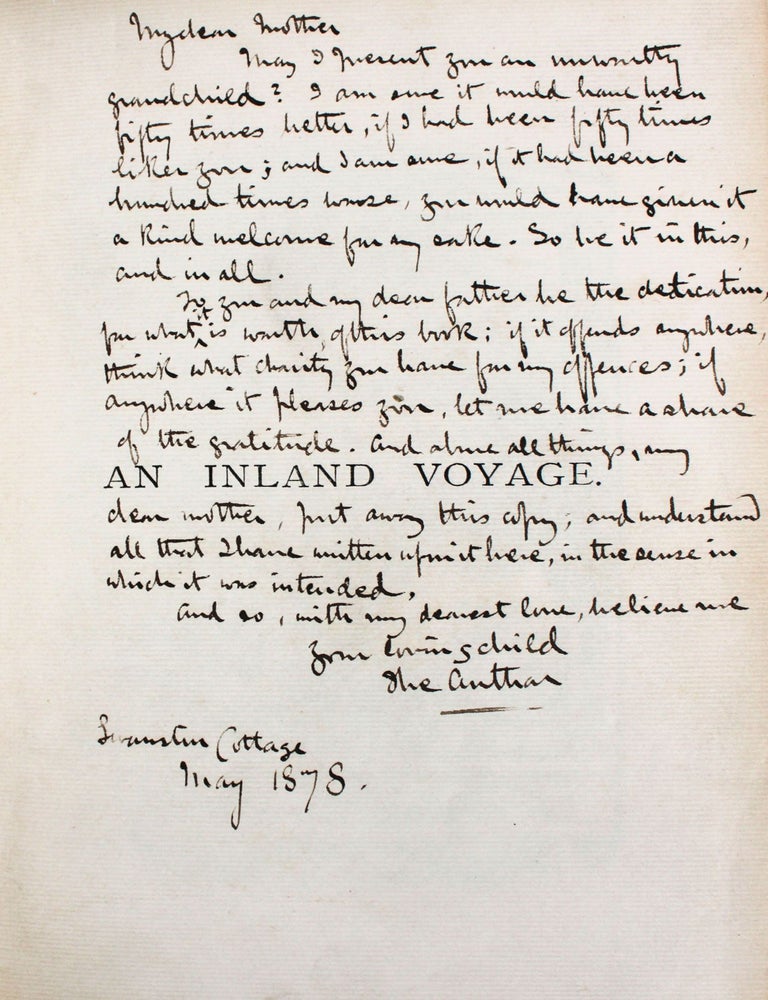 My dear Mother
May I present you an unworthy
grandchild? I am sure it would have been
fifty times better, if I had been fifty times
liker you; and I am sure, if it had been a
hundred times worse, you would have given it
a kind welcome for my sake. So be it in this,
and in all.
To you and my dear father be the dedication,
for what it is worth, of this book; if it offends anywhere,
think what charity you have for my offences; if
anywhere it pleases you, let me have a share
of the gratitude. And above all things, my
AN INLAND VOYAGE.
dear mother, put away this copy; and understand
all that I have written upon it here, in the sense in
which it was intended.
And so, with my dearest love, believe me
your loving child
The Author
Swanston Cottage
May 1878.